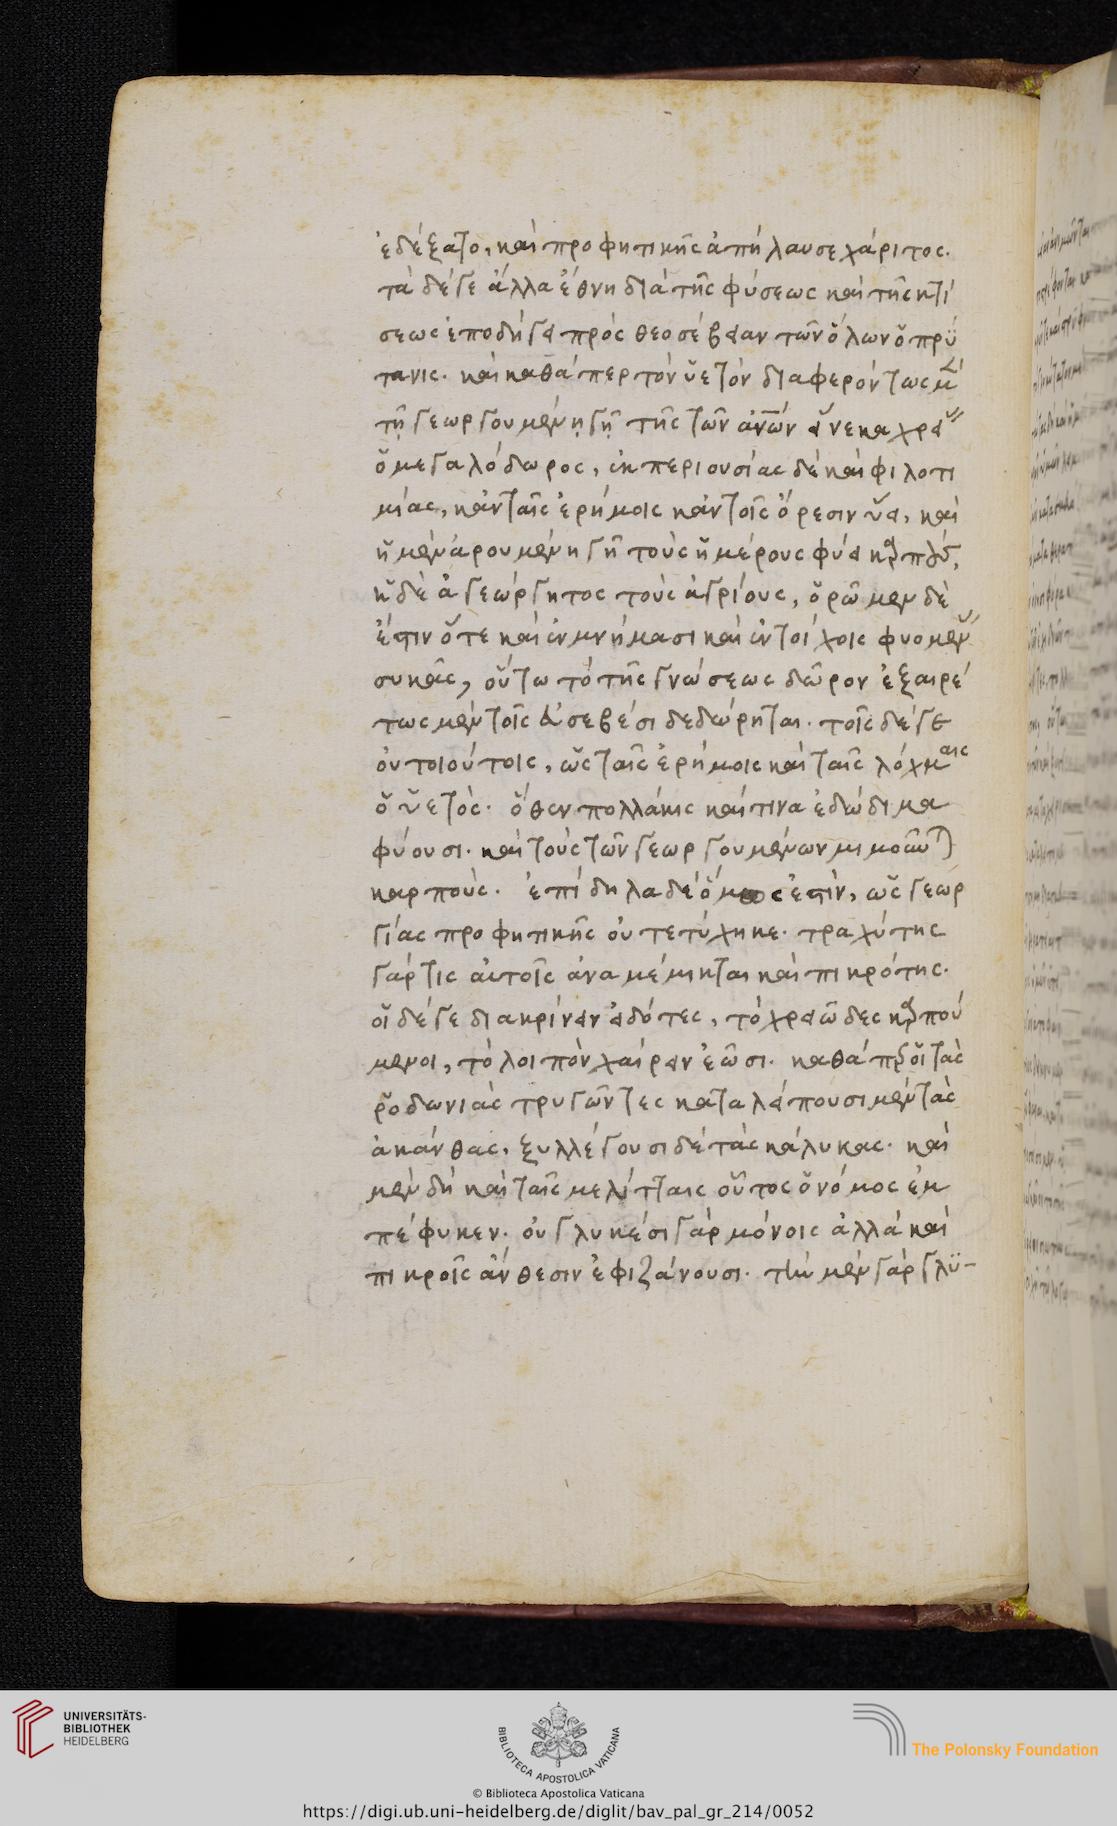 ἐδέξατο, καὶ προφητικῆς ἀπήλαυσε χάριτος.
τὰ δέ γε ἄλλα ἔθνη διὰ τῆς φύσεως καὶ τῆς κτί
σεως ἐποδήγει πρὸς θεοσέβειαν τῶν ὅλων ὁ πρύ
τανις. καὶ καθάπερ τὸν ὑετὸν διαφερόντως μ
τῇ γεωργουμένῃ γῇ τῆς τῶν ἀνῶν εἵνεκα χρεί
ὁ μεγαλόδωρος, ἐκ περιουσίας δὲ καὶ φιλοτι
μίας, κἀν ταῖς ἐρήμοις κἀν τοῖς ὄρεσιν ὕει, καὶ
ἡ μὲν ἀρουμένη γῆ τοὺς ἡμέρους φύει καρπούς,
ἡ δὲ ἀγεώργητος τοὺς ἀγρίους, ὁρῶμεν δὲ
ἔστιν ὅτε καὶ ἐν μνήμασι καὶ ἐν τοίχοις φυομεν
συκᾶς, οὕτω τὸ τῆς γνώσεως δῶρον ἐξαιρέ
τως μὲν τοῖς εὐσεβέσι δεδώρηται. τοῖς δέ γε
οὐ τοιούτοις, ὡς ταῖς ἐρήμοις καὶ ταῖς λόχμαις
ὁ ὑετός. ὅθεν πολλάκις καί τινα ἐδώδιμα
φύουσι. καὶ τοὺς τῶν γεωργουμένων μιμοῦνται
καρπούς. ἐπίδηλα δὲ ὅμως ἐστὶν, ὡς γεωρ
γίας προφητικῆς οὐ τετύχηκε. τραχύτης
γάρ τις αὐτοῖς ἀναμέμικται καὶ πικρότης.
οἱ δέ γε διακρίνειν εἰδότες, τὸ χρειῶδες καρπού
μενοι, τὸ λοιπὸν χαίρειν ἐῶσι. καθάπερ οἱ τὰς
ῥοδωνιὰς τρυγῶντες καταλείπουσι μὲν τὰς
ἀκάνθας, ξυλλέγουσι δὲ τὰς κάλυκας. καὶ
μὲν δὴ καὶ ταῖς μελίτταις οὗτος ὁ νόμος ἐμ
πέφυκεν. οὐ γλυκέσι γὰρ μόνοις ἀλλὰ καὶ
πικροῖς ἄνθεσιν ἐφιζάνουσι. τὴν μὲν γὰρ γλυ-
UNIVERSITÄTS-
BIBLIOTHEK
HEIDELBERG
BIBLIOTECA APOSTOLICA VATICANA
The Polonsky Foundation
© Biblioteca Apostolica Vaticana
https://digi.ub.uni-heidelberg.de/diglit/bav_pal_gr_214/0052